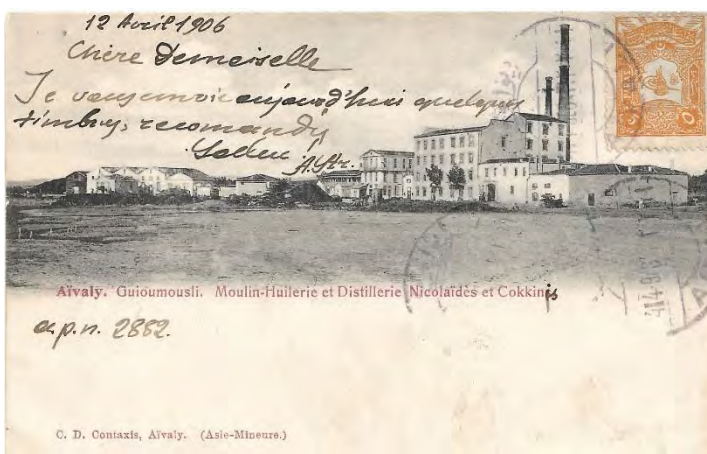 12 Avril 1906
Chère Demoiselle
Je vous envoie aujourd'hui quelques
timbres, recomandy
A. Str.
Aïvaly. Guioumousli. Moulin-Huilerie et Distillerie Nicolaïdès et Cokkinis
a.p.n. 2882.
C. D. Contaxis, Aïvaly. (Asie-Mineure.)